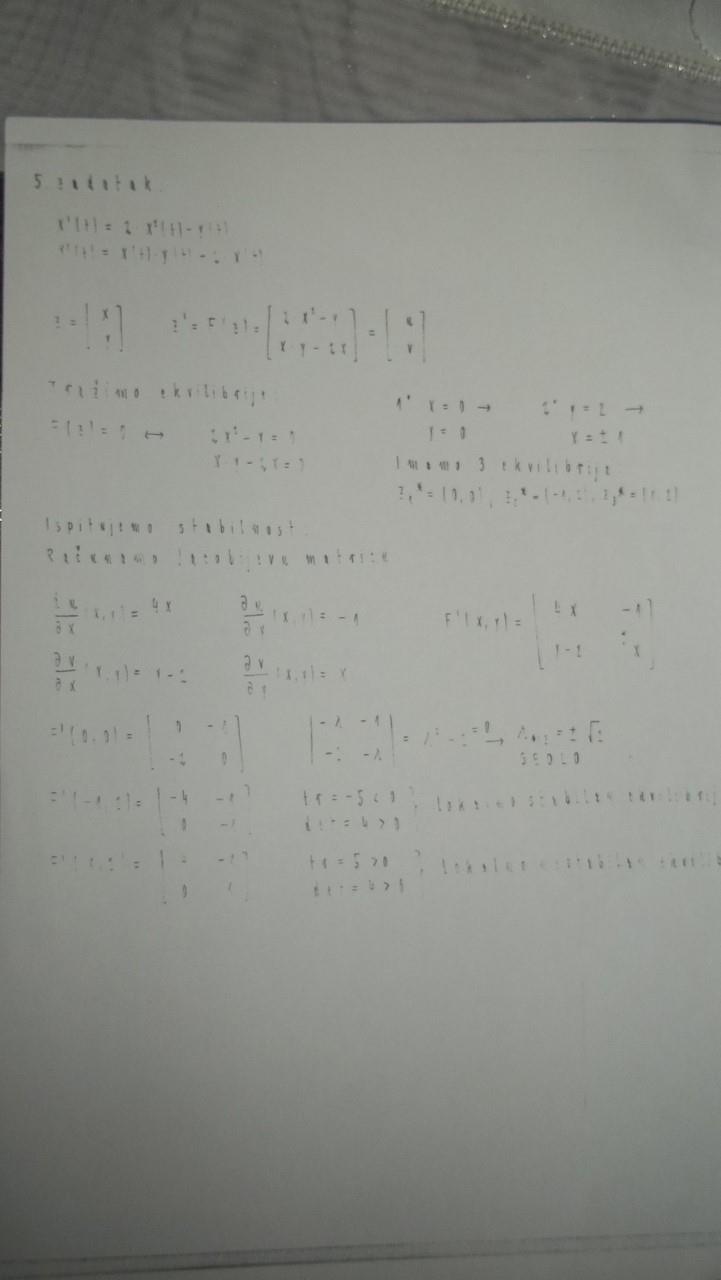 5. zadatak.
x'(t) = 2 x²(t) - y(t)
y'(t) = x(t) y(t) - 2 x(t)
z = [x y] z' = F(z) = [2 x² - y x y - 2x] = [u v]
Tražimo ekvilibrije:
F(z) = 0 ↔ 2x² - y = 0
x y - 2x = 0
1° x = 0 →
y = 0
2° y = 2 →
x = ± 1
Imamo 3 ekvilibrija:
z₁* = (0,0), z₂* = (-1,2), z₃* = (1,2)
Ispitujemo stabilnost.
Računamo Jacobijevu matricu
∂u/∂x (x,y) = 4x ∂u/∂y (x,y) = -1 F'(x,y) = [4x -1 y-2 x]
∂v/∂x (x,y) = y-2 ∂v/∂y (x,y) = x
F'(0,0) = [0 -1 -2 0] |-λ -1 -2 -λ| = λ² - 2 = 0 → λ₁,₂ = ± √2
SEDLO
F'(-1,2) = [-4 -1 0 -1] tr = -5 < 0
det = 4 > 0 } lokalno stabilan
F'(1,2) = [4 -1 0 1] tr = 5 > 0
det = 4 > 0 } lokalno nestabilan